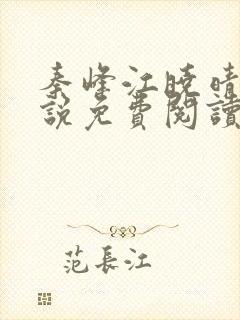 秦峰江曉晴
説免費閱讀
范長江